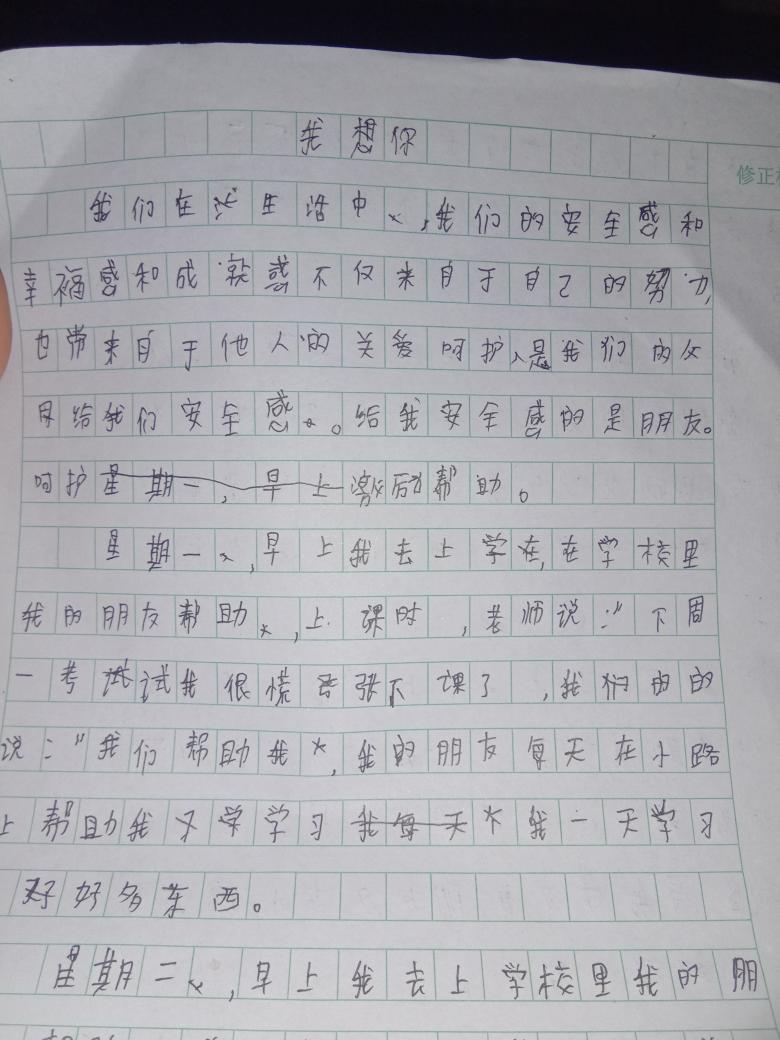 我想你
修正
我们在生活中,我们的安全感和
幸福感和成就感不仅来自于自己的努力,
也常来自于他人的关爱呵护是我们的父
母给我们安全感。给我安全感的是朋友。
呵护星期一,早上激励帮助。
星期一,早上我去上学在,在学校里
我的朋友帮助,上课时,老师说:"下周
一考试试我很慌张下课了,我们的
说:"我们帮助我,我的朋友每天在小路
上帮助我又学学习我每天不我一天学习
好好多东西。
星期二,早上我去上学校里我的朋